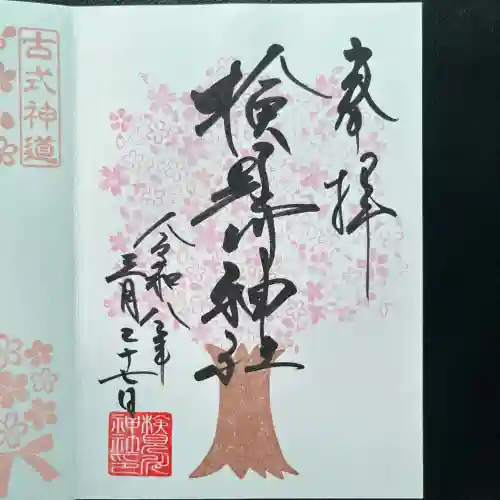 奉拝
検見川神社
令和八年
三月二十七日
検見川
神社印
古式神道